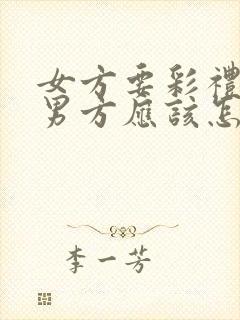 女方要彩禮
男方應該怎
李一芳